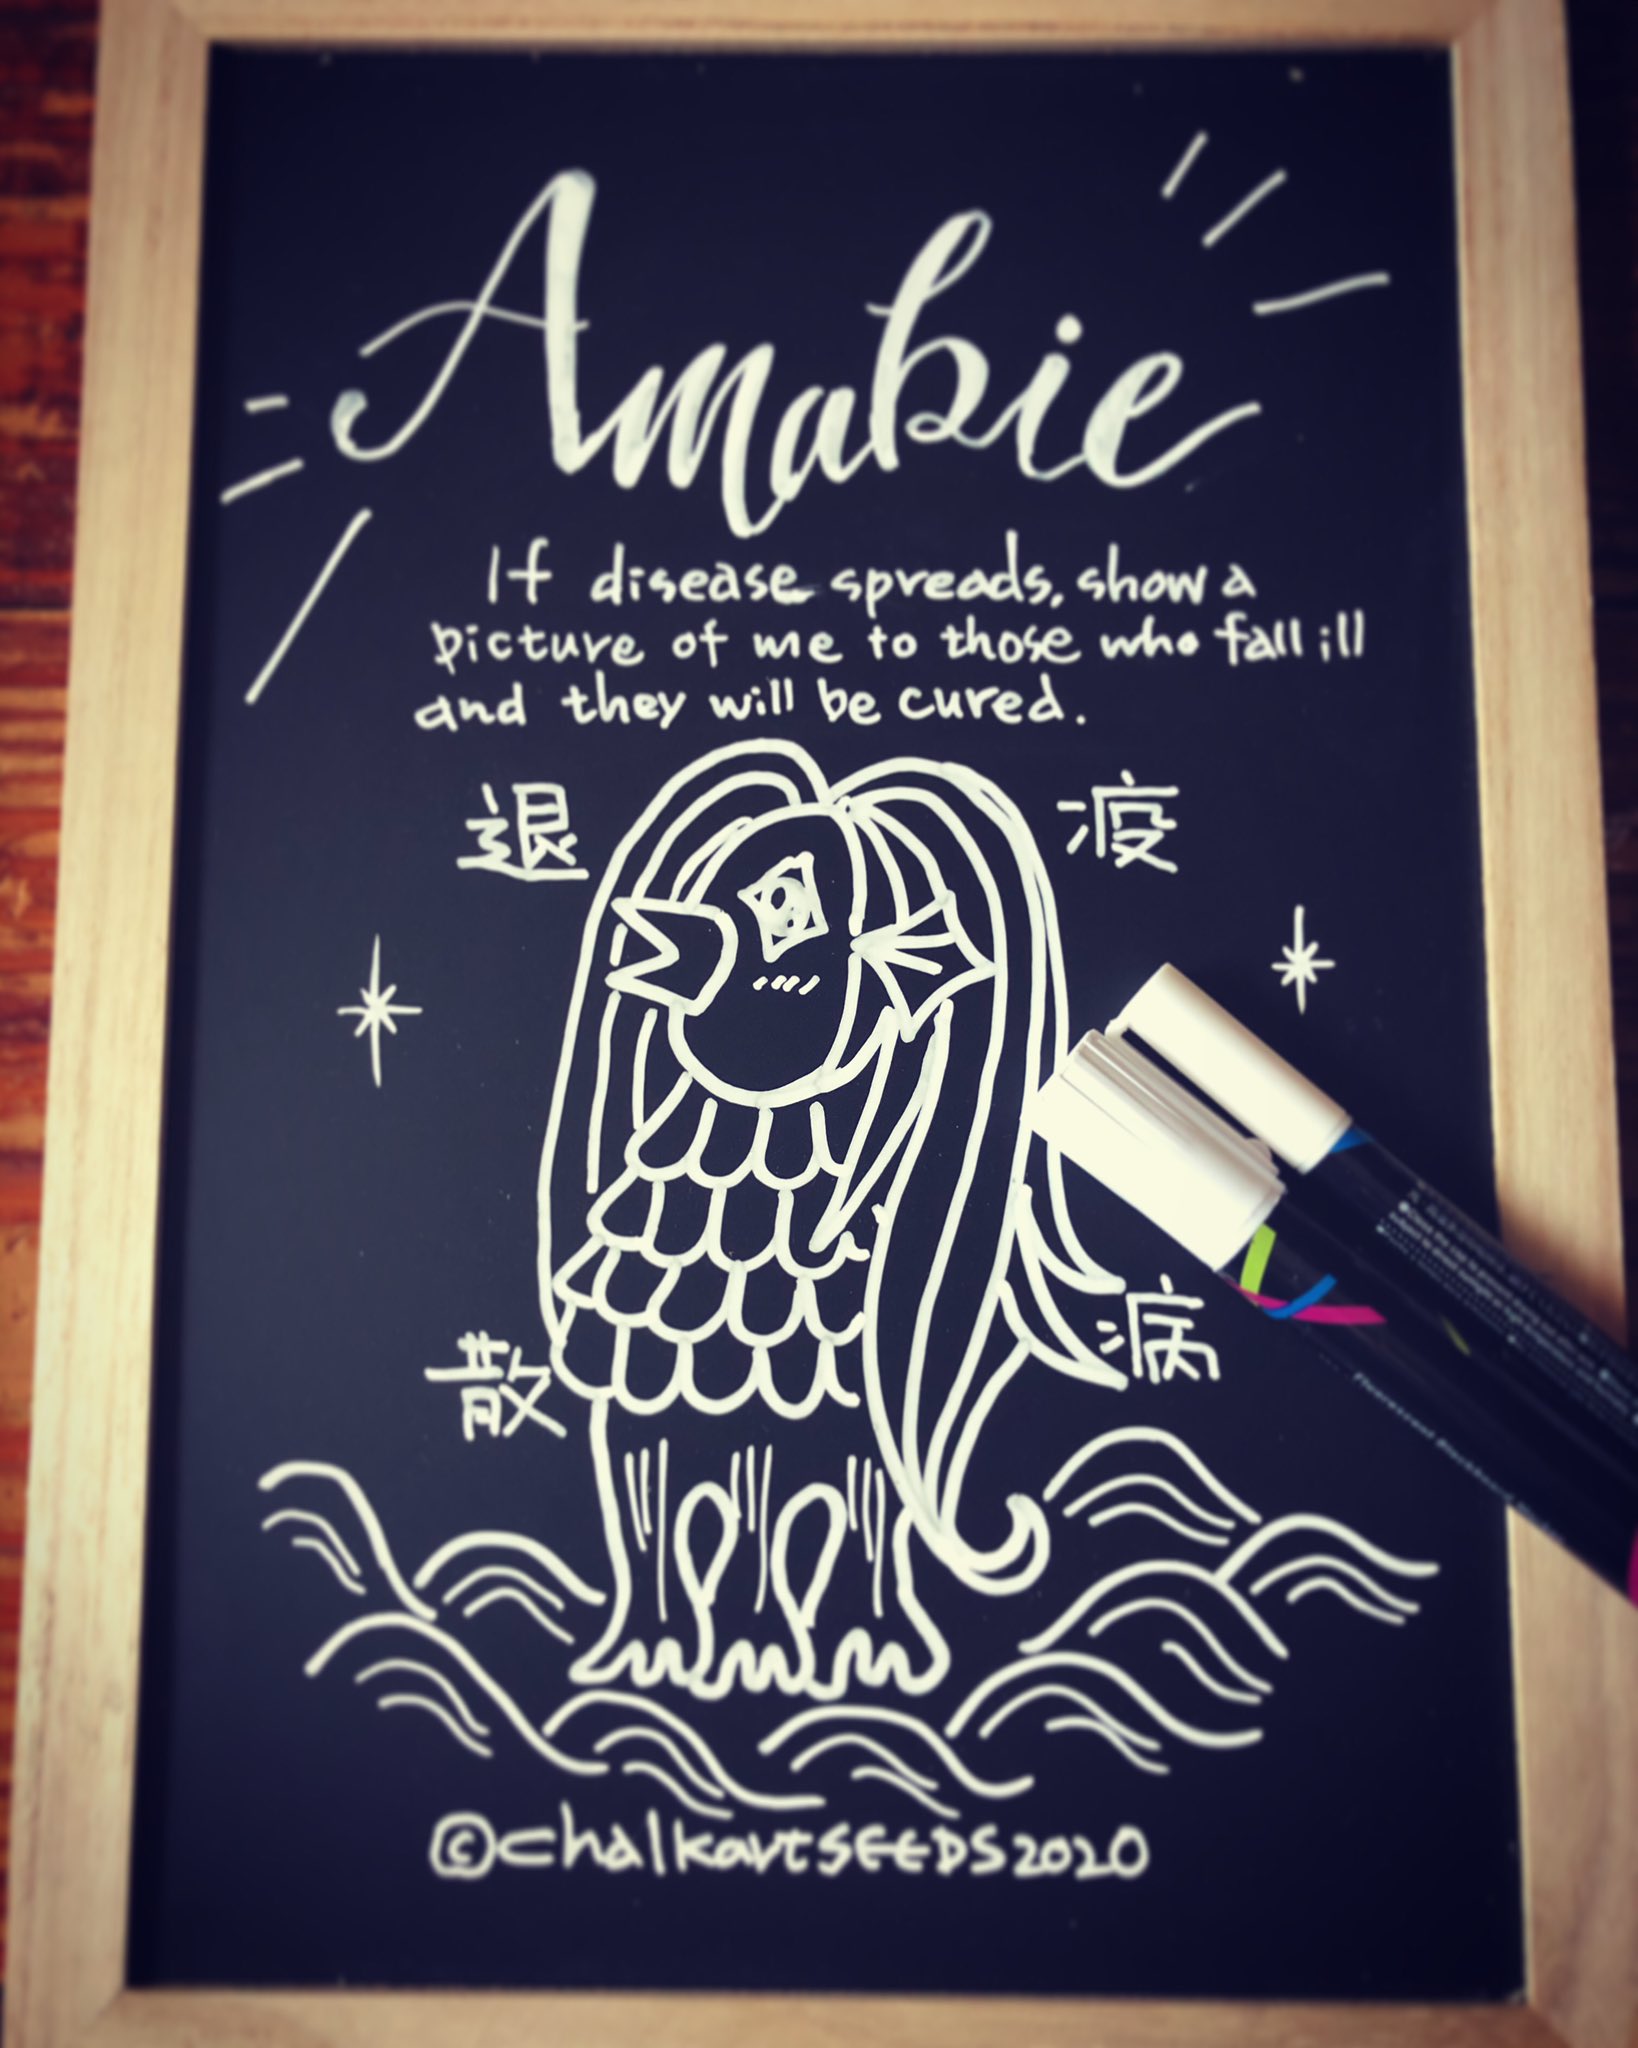 Amabie
If disease spreads, show a
picture of me to those who fall ill
and they will be cured.
疫
病
退
散
©chalkartSEEDS2020